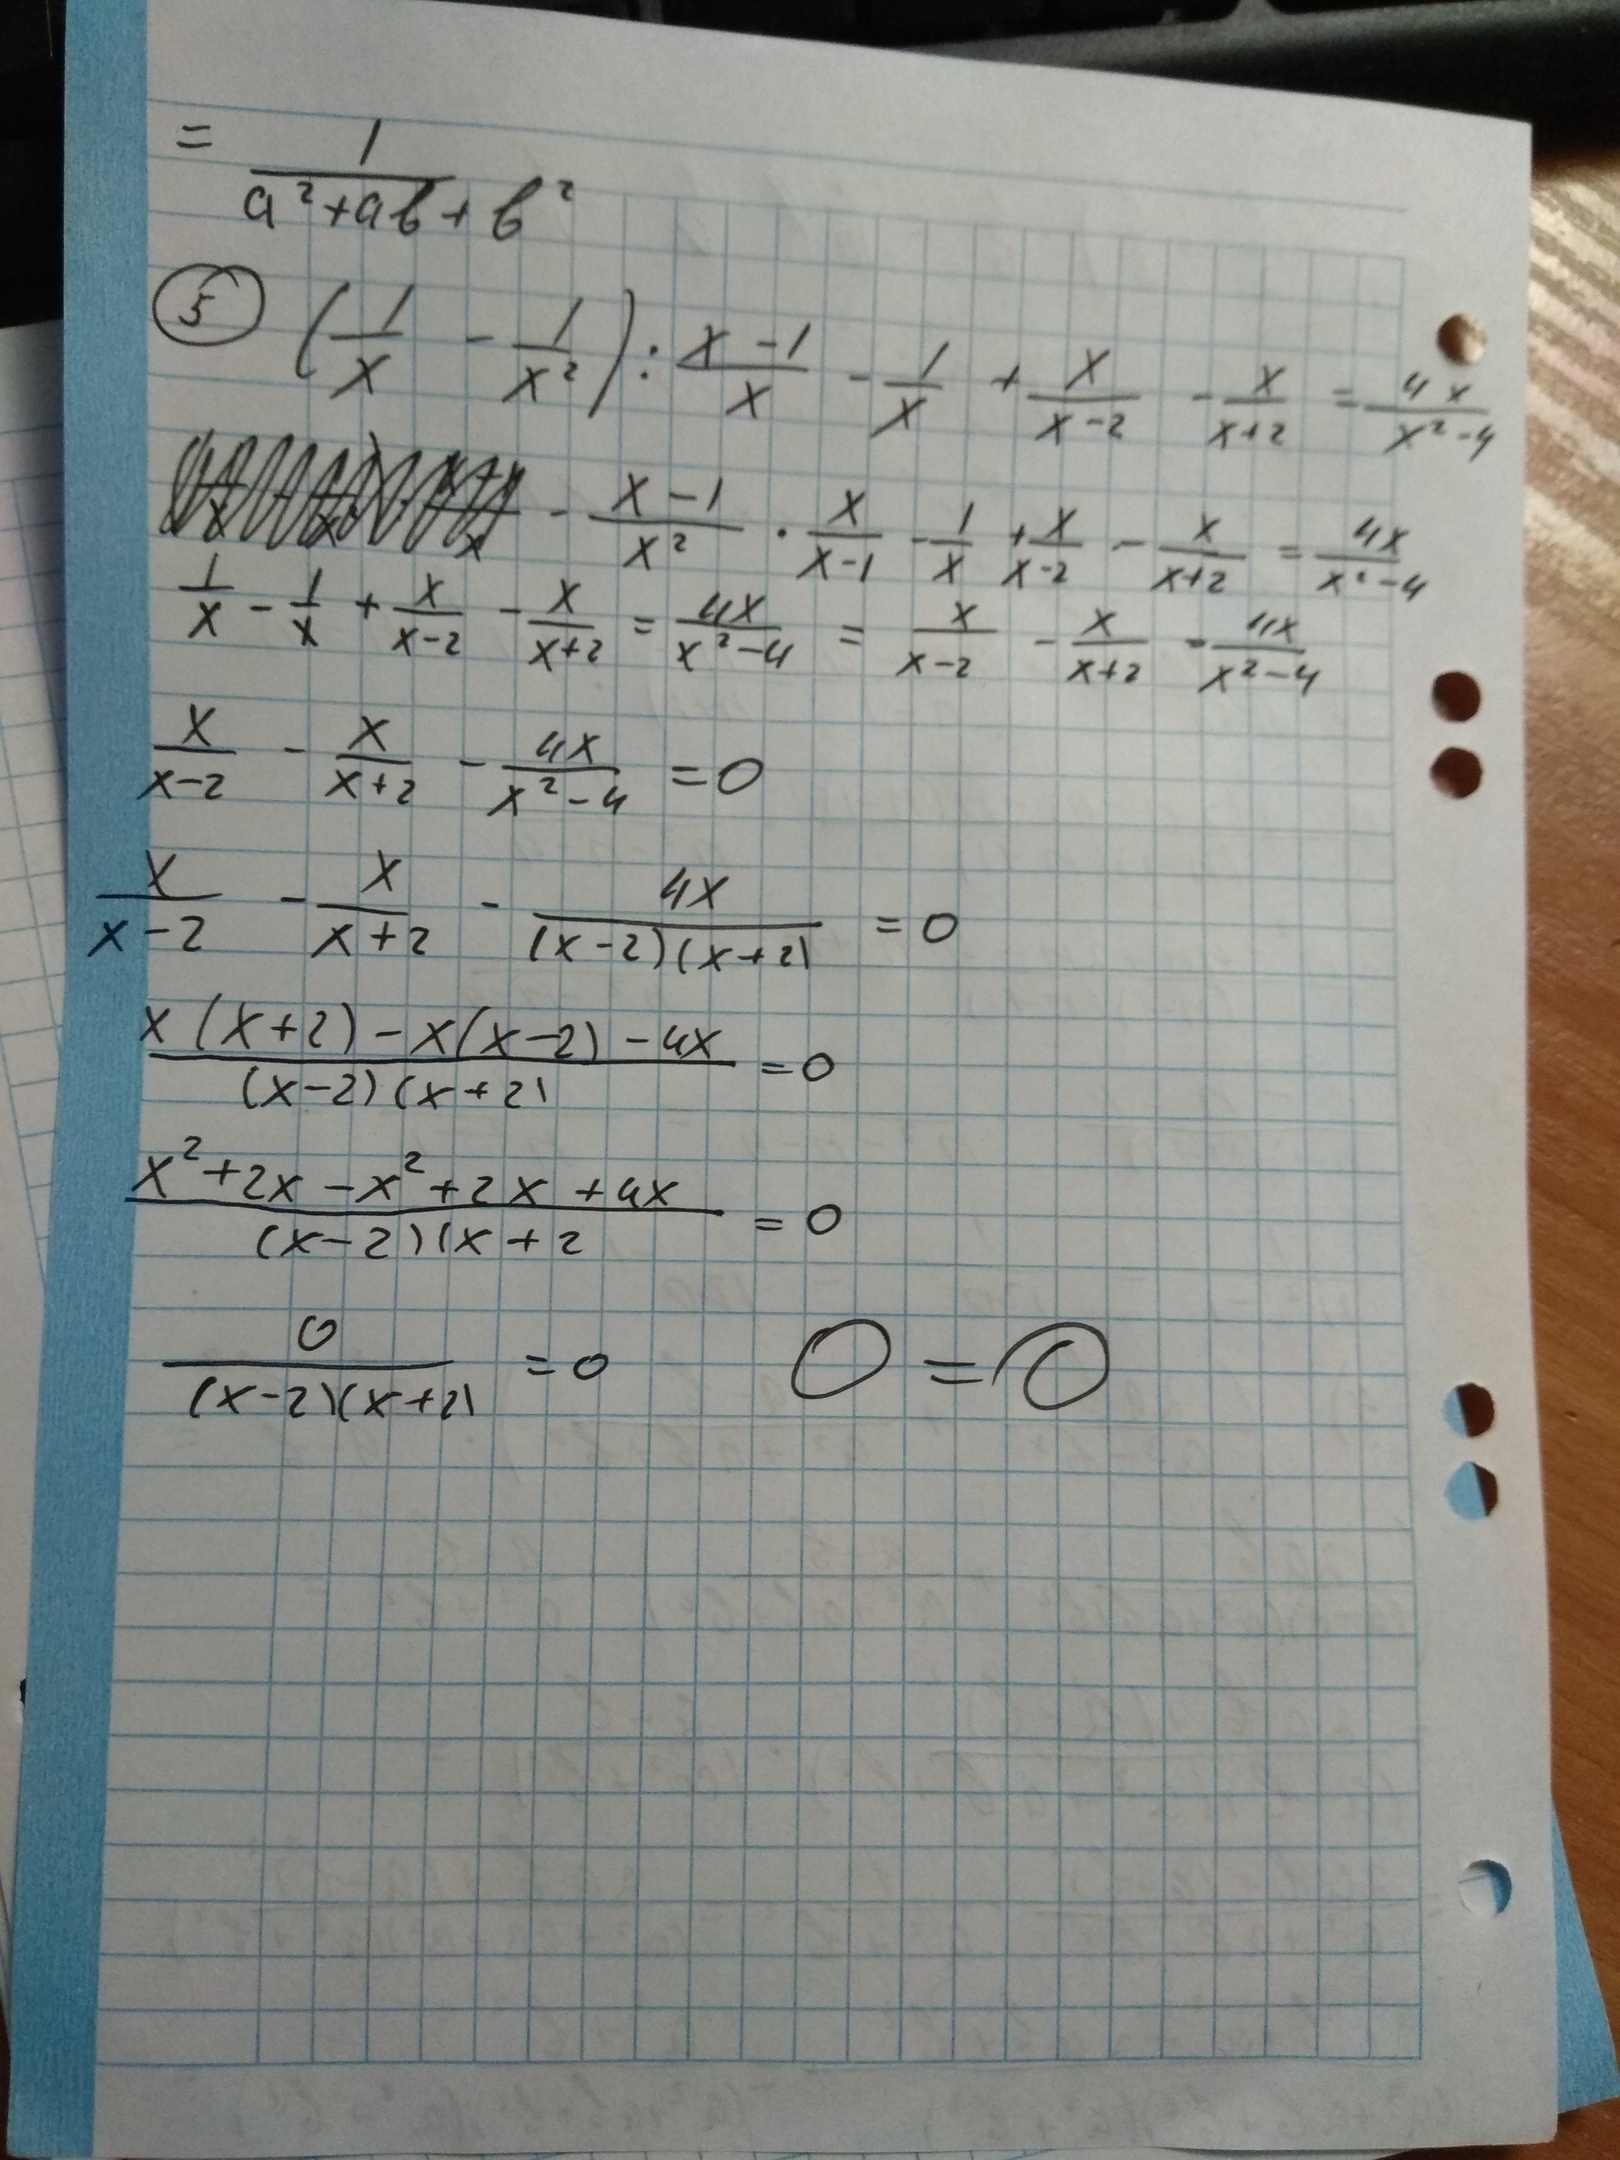 = 1/(a² + ab + b²)
⑤ (1/x - 1/x²) : (x-1)/x - 1/x + x/(x-2) - x/(x+2) = 4x/(x²-4)
- (x-1)/x² · x/(x-1) - 1/x + x/(x-2) - x/(x+2) = 4x/(x²-4)
1/x - 1/x + x/(x-2) - x/(x+2) = 4x/(x²-4) = x/(x-2) - x/(x+2) - 4x/(x²-4)
x/(x-2) - x/(x+2) - 4x/(x²-4) = 0
x/(x-2) - x/(x+2) - 4x/((x-2)(x+2)) = 0
(x(x+2) - x(x-2) - 4x)/((x-2)(x+2)) = 0
(x² + 2x - x² + 2x + 4x)/((x-2)(x+2) = 0
0/((x-2)(x+2)) = 0 0 = 0